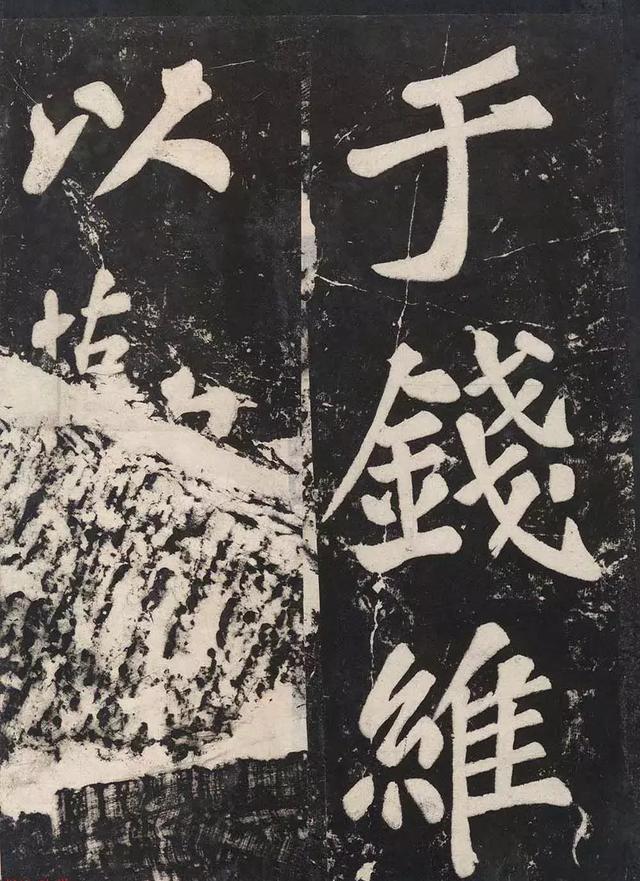 于錢維
以